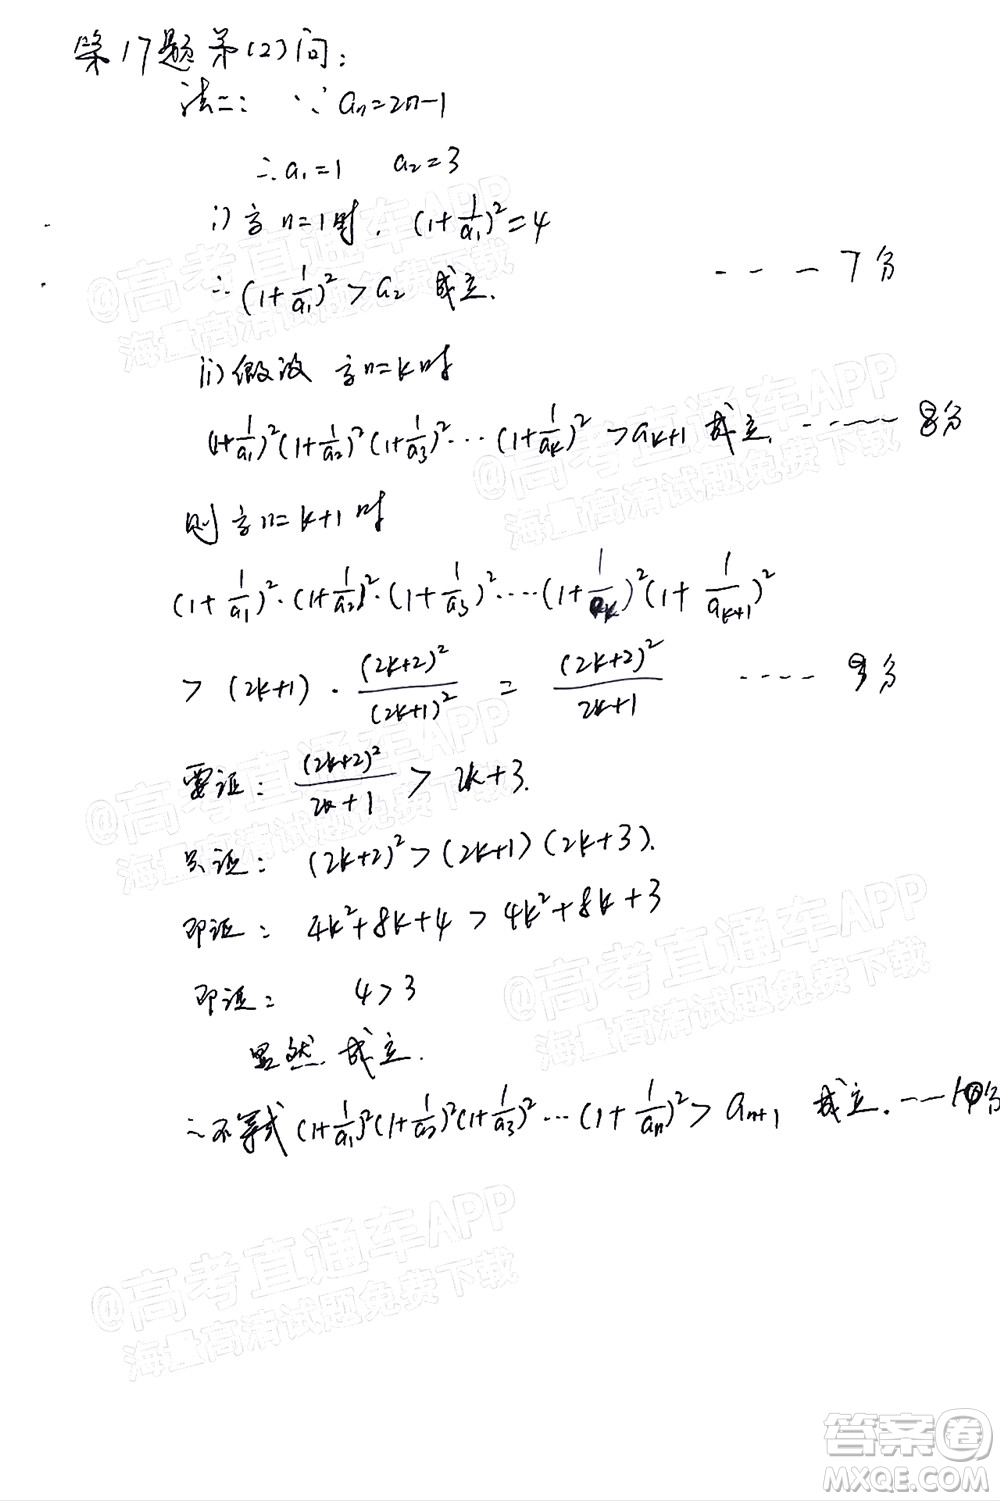 第17题第(2)问:
法二: ∵ aₙ=2n-1
∴a₁=1 a₂=3
i) 当n=1时, (1+1/a₁)²=4
∴(1+1/a₁)²>a₂ 成立. ---7分
ii) 假设 当n=k时
(1+1/a₁)²(1+1/a₂)²(1+1/a₃)²…(1+1/aₖ)²>aₖ₊₁ 成立. ------8分
则当n=k+1时
(1+1/a₁)²·(1+1/a₂)²·(1+1/a₃)²·…·(1+1/aₖ)²(1+1/aₖ₊₁)²
>(2k+1)·(2k+2)²/(2k+1)² = (2k+2)²/(2k+1) ----9分
要证: (2k+2)²/(2k+1) > 2k+3.
只证: (2k+2)²>(2k+1)(2k+3).
即证: 4k²+8k+4>4k²+8k+3
即证: 4>3
显然 成立.
∴不等式(1+1/a₁)²(1+1/a₂)²(1+1/a₃)²…(1+1/aₙ)²>aₙ₊₁ 成立. ---10分
@高考直通车APP
海量高清试题免费下载
@高考直通车APP
海量高清试题免费下载
@高考直通车APP
海量高清试题免费下载
@高考直通车APP
海量高清试题免费下载
@高考直通车APP
海量高清试题免费下载
答案圈
MXQE.COM